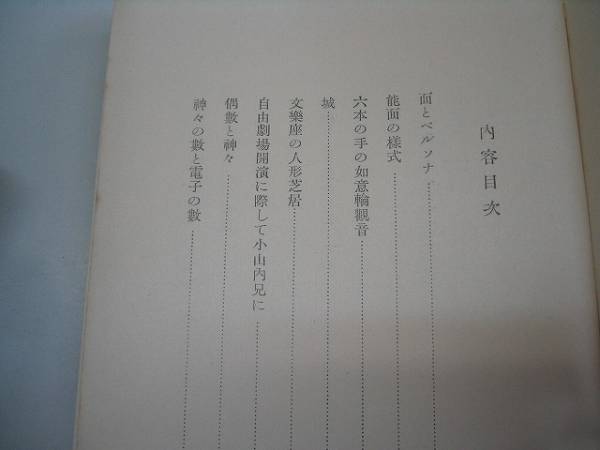 内容目次
面とペルソナ
能面の樣式
六本の手の如意輪觀音
城
文樂座の人形芝居
自由劇場開演に際して小山內兄に
偶數と神々
神々の數と電子の數